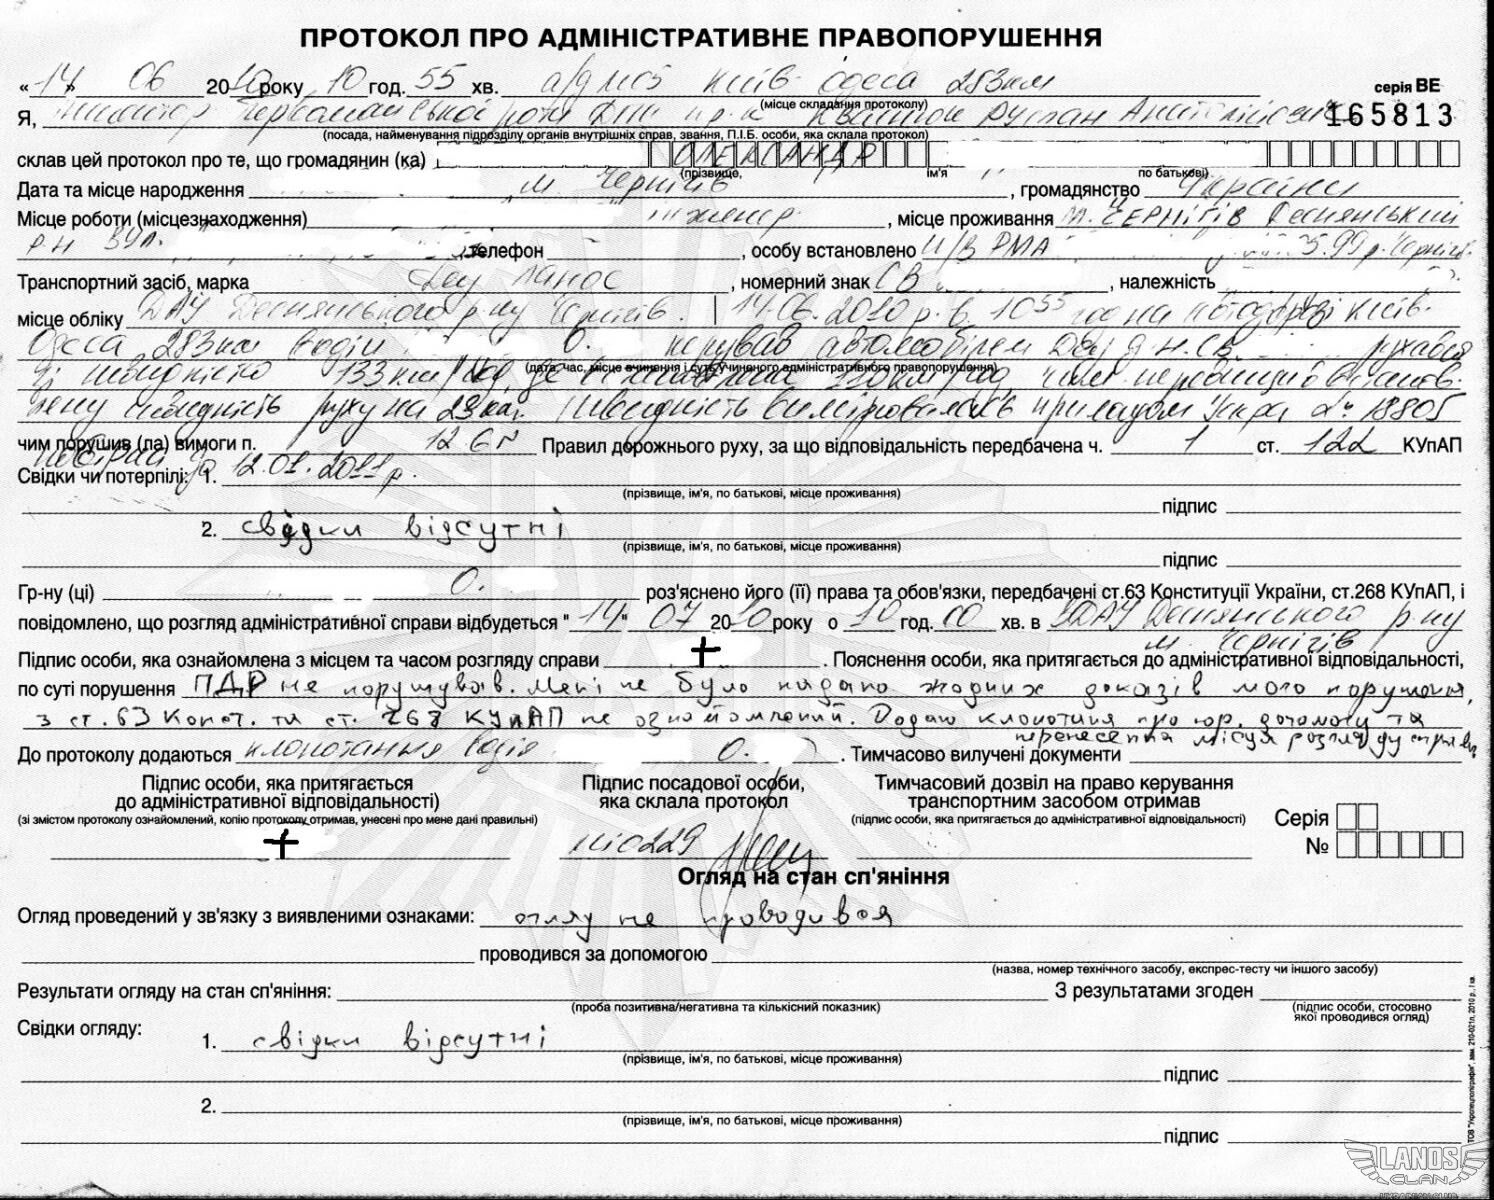 ПРОТОКОЛ ПРО АДМІНІСТРАТИВНЕ ПРАВОПОРУШЕННЯ
« 14 » 06 2010 року 10 год. 55 хв. а/д М05 Київ Одеса 283км серія ВЕ
(місце складання протоколу)
Я, Руслан 165813
(посада, найменування підрозділу органів внутрішніх справ, звання, П.І.Б. особи, яка склала протокол)
склав цей протокол про те, що громадянин (ка) ОЛЕКСАНДР
(прізвище, ім'я по батькові)
Дата та місце народження м. Чернігів , громадянство України
Місце роботи (місцезнаходження) інженер , місце проживання М. ЧЕРНІГІВ Деснянський
р-н вул. телефон , особу встановлено РМА
Транспортний засіб, марка Деу Ланос , номерний знак СВ , належність
місце обліку ДАУ Деснянського р-ну Чернігів. 14.06.2010 р. в 10 55 Київ-
Одеса 283км водій О. керував автомобілем Деу д.н. СВ рухався
зі швидкістю 133 км/год, де 110 км/год, чим перевищив встанов-
(дата, час, місце вчинення і суть учиненого адміністративного правопорушення)
лену швидкість руху на 23 км. Швидкість вимірювалась приладом Іскра 18805
чим порушив (ла) вимоги п. 12.6г Правил дорожнього руху, за що відповідальність передбачена ч. 1 ст. 122 КУпАП
Свідки чи потерпілі: 1. 12.01.2011 р.
(прізвище, ім'я, по батькові, місце проживання)
підпис
2. свідки відсутні
(прізвище, ім'я, по батькові, місце проживання)
підпис
Гр-ну (ці) О. роз'яснено його (її) права та обов'язки, передбачені ст.63 Конституції України, ст.268 КУпАП, і
повідомлено, що розгляд адміністративної справи відбудеться "14" 07 2010 року о 10 год. 00 хв. в ДАУ Деснянського р-ну
м. Чернігів
Підпис особи, яка ознайомлена з місцем та часом розгляду справи + . Пояснення особи, яка притягається до адміністративної відповідальності,
по суті порушення ПДР не порушував. Мені не було надано жодних доказів мого порушення,
з ст. 63 Конст. та ст. 268 КУпАП не ознайомлений. Додаю клопотання про юр. допомогу та
перенесення місця розгляду справи
До протоколу додаються клопотання водія О. . Тимчасово вилучені документи
Підпис особи, яка притягається Підпис посадової особи, Тимчасовий дозвіл на право керування
до адміністративної відповідальності) яка склала протокол транспортним засобом отримав
(зі змістом протоколу ознайомлений, копію протоколу отримав, унесені про мене дані правильні) (підпис особи, яка притягається до адміністративної відповідальності) Серія
+ №
Огляд на стан сп'яніння
Огляд проведений у зв'язку з виявленими ознаками: огляд не проводився
проводився за допомогою
(назва, номер технічного засобу, експрес-тесту чи іншого засобу)
Результати огляду на стан сп'яніння: З результатами згоден
(проба позитивна/негативна та кількісний показник) (підпис особи, стосовно
якої проводився огляд)
Свідки огляду:
1. свідки відсутні
(прізвище, ім'я, по батькові, місце проживання)
підпис
2.
(прізвище, ім'я, по батькові, місце проживання)
підпис
LANOS
CLAN